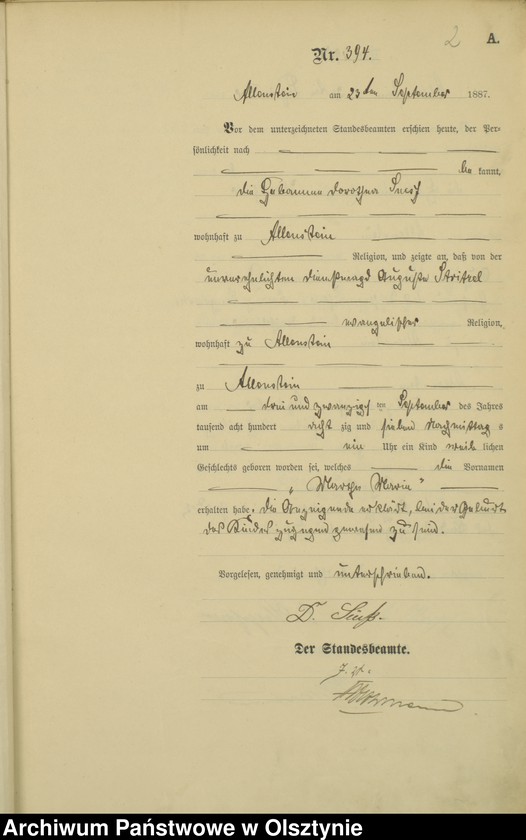 2 A.
Nr. 394.
Allenstein am 23ten September 1887.
Vor dem unterzeichneten Standesbeamten erschien heute, der Per-
sönlichkeit nach
be kannt,
die Hebamme Dorothea
wohnhaft zu Allenstein
Religion, und zeigte an, daß von der
unverehelichten Dienstmagd Auguste Stritzel
evangelischer Religion,
wohnhaft zu Allenstein
zu Allenstein
am drei und zwanzigsten September des Jahres
tausend acht hundert acht zig und sieben Nachmittag s
um ein Uhr ein Kind weib lichen
Geschlechts geboren worden sei, welches die Vornamen
„Martha Maria“
erhalten habe. Die Anzeigende erklärt, bei der Geburt
des Kindes zugegen gewesen zu sein.
Vorgelesen, genehmigt und unterschrieben.
D.
Der Standesbeamte.
Archiwum Państwowe w Olsztynie